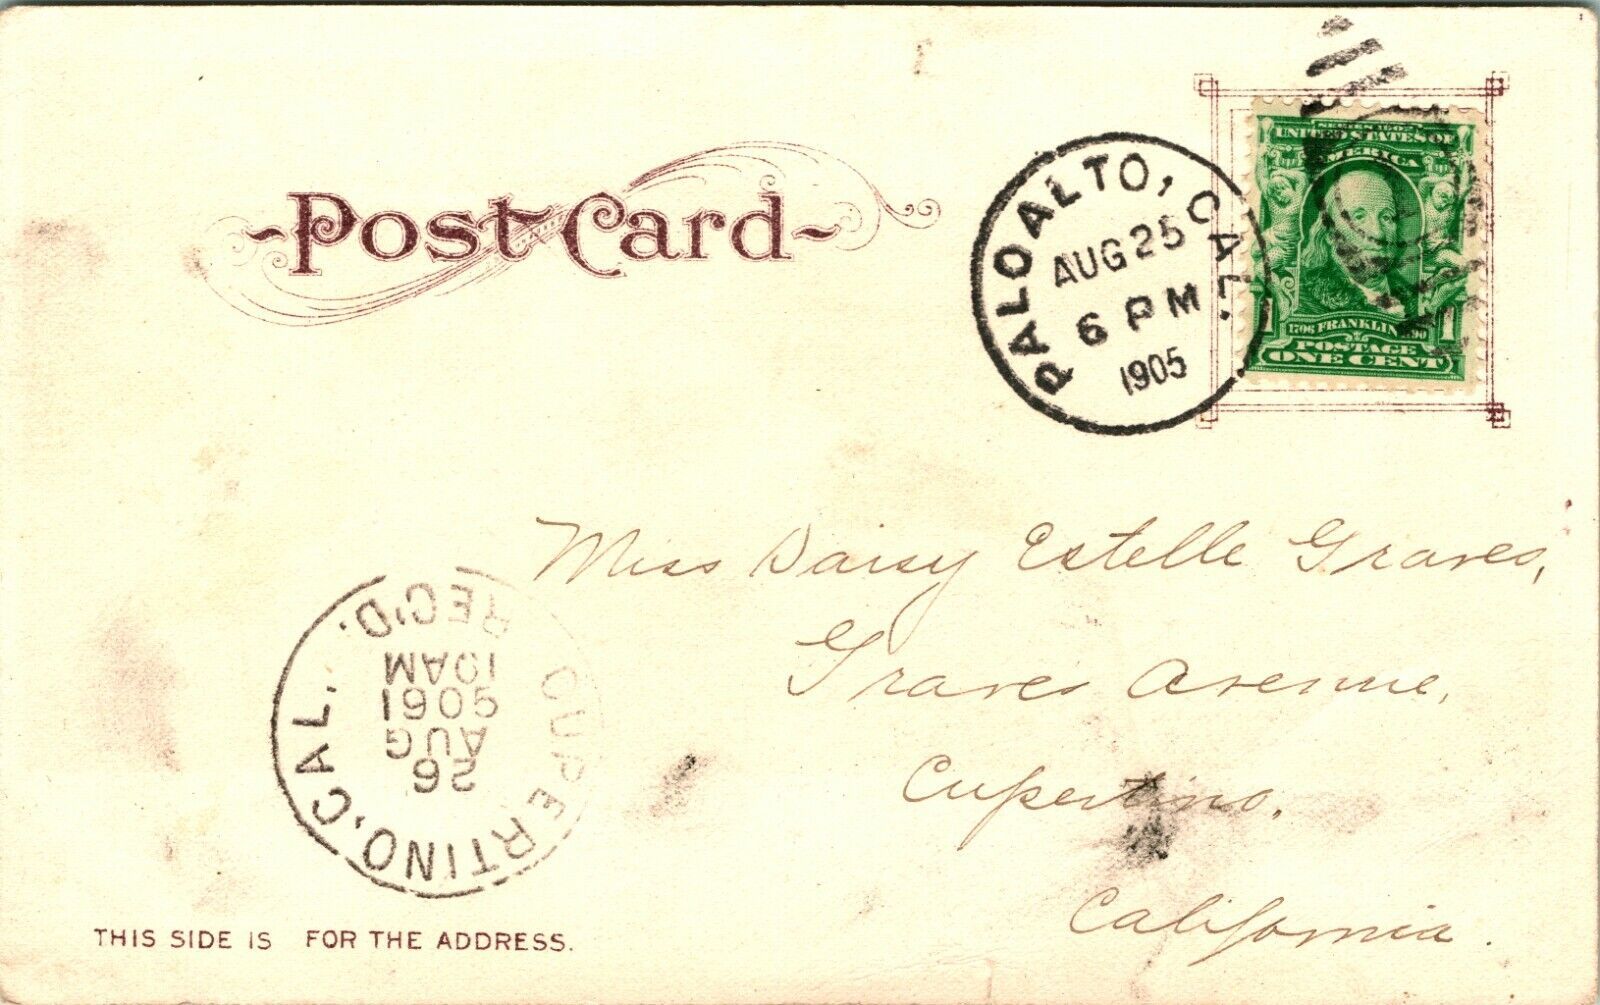 Post Card
PALO ALTO, CAL.
AUG 25
6 PM
1905
SERIES 1902
UNITED STATES OF
AMERICA
1706 FRANKLIN 1790
1 1
POSTAGE
ONE CENT
Miss Daisy Estelle Graves,
Graves Avenue,
Cupertino,
California.
CUPERTINO, CAL.
26
AUG
1905
10AM
REC'D.
THIS SIDE IS FOR THE ADDRESS.